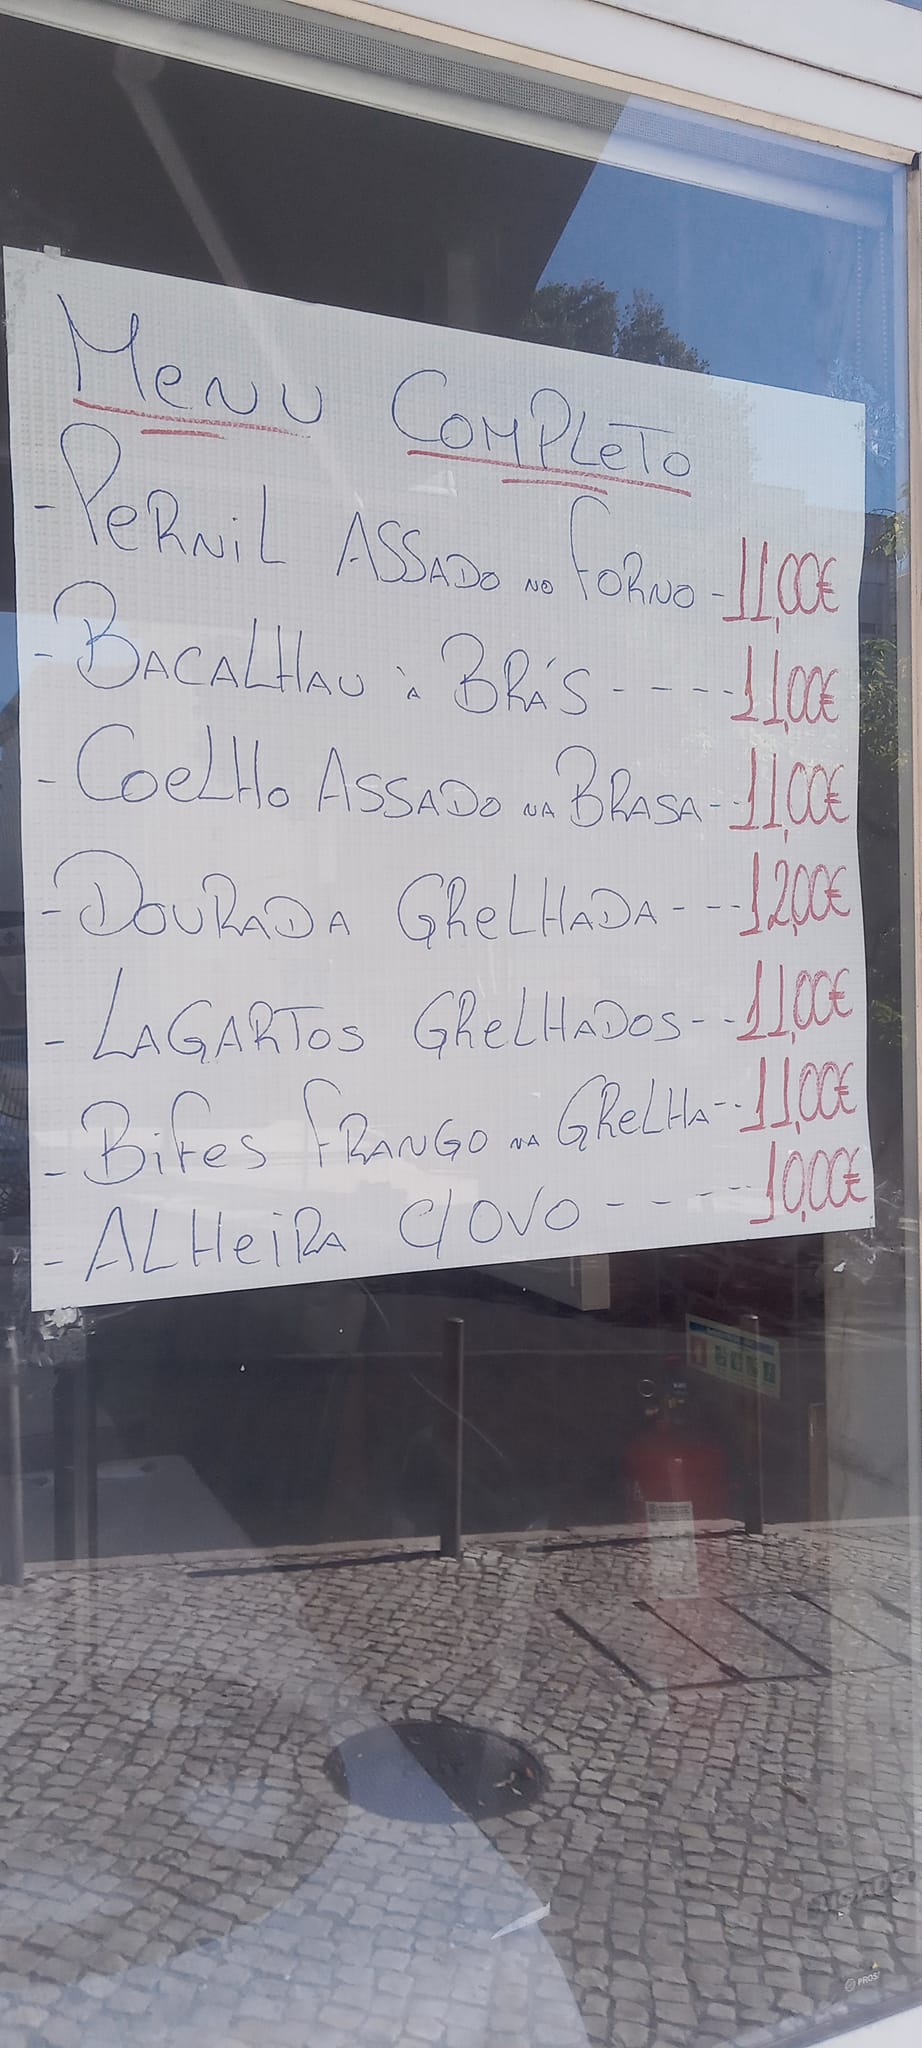 Menu Completo
- Pernil Assado no Forno - 11,00€
- Bacalhau à Brás - - - - 11,00€
- Coelho Assado na Brasa - - 11,00€
- Dourada Grelhada - - - 12,00€
- Lagartos Grelhados - - - 11,00€
- Bifes Frango na Grelha - - - 11,00€
- Alheira c/ ovo - - - - - 10,00€
PROS!